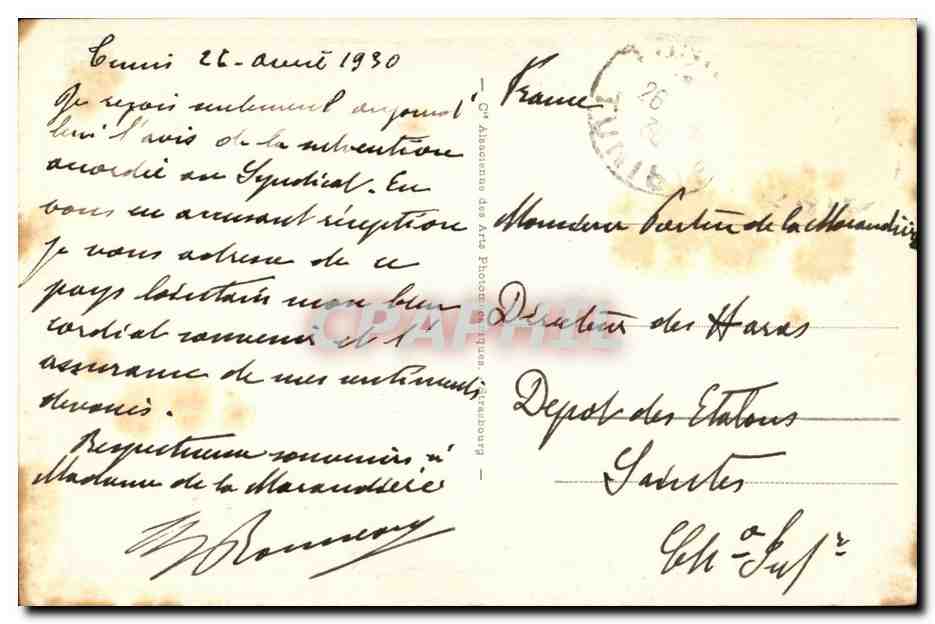 Tunis 26 avril 1930
Je reçois seulement aujourd'
hui l'avis de la subvention
accordée au Syndicat. En
vous en accusant réception
je vous adresse de ce
pays lointain mon bien
cordial souvenir et l'
assurance de mes sentiments
dévoués.
Respectueux souvenirs à
Madame de la Marandière
France
Monsieur de la Marandière
Directeur des Haras
Depot des Etalons
Saintes
Ch te Infre
Cie Alsacienne des Arts Photomécaniques, Strasbourg
26
CPAPHIL